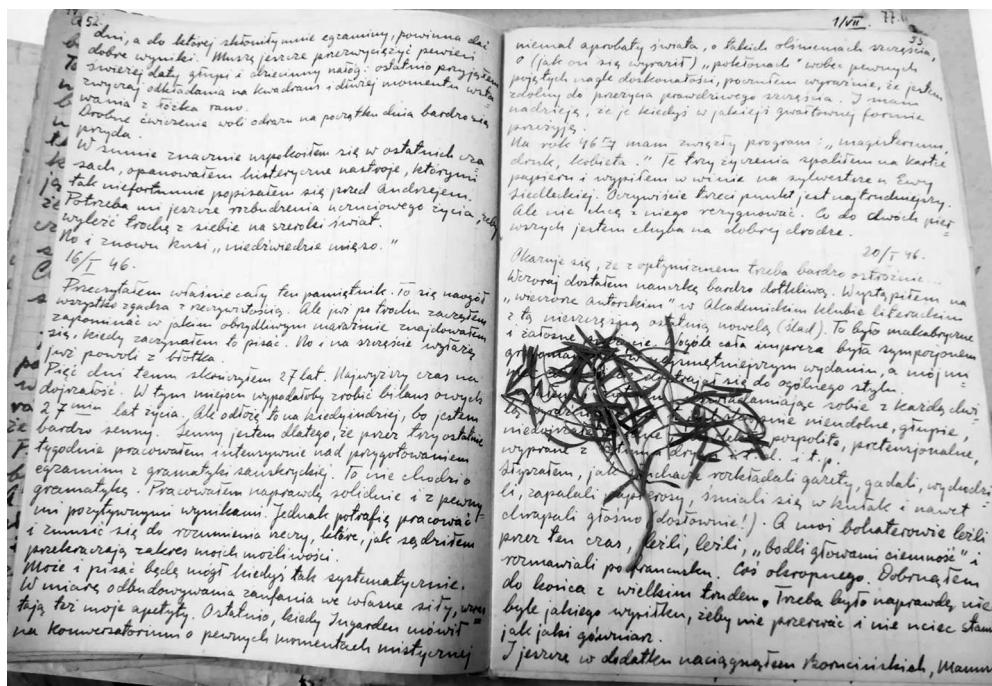 52.
dni, a do której skłoniły mnie egzaminy, powinna dać
dobre wyniki. Muszę jeszcze przezwyciężyć pewien
świeżej daty głupi i dziecinny nałóg: ostatnio przyjąłem
zwyczaj odkładania na kwadrans i dłużej momentu wsta=
wania z łóżka rano.
Drobne ćwiczenie woli odrazu na początku dnia bardzo się
przyda.
W sumie znacznie uspokoiłem się w ostatnich cza
sach, opanowałem histeryczne nastroje, którymi
tak niefortunnie popisałem się przed Andrzejem.
Potrzeba mi jeszcze rozbudzenia uczuciowego życia, żeby
wyleźć trochę z siebie na szeroki świat.
No i znowu kusi "niedźwiedzie mięso."
16/I 46.
Przeczytałem właśnie cały ten pamiętnik. To się naogół
wszystko zgadza z rzeczywistością. Ale już po trochu zacząłem
zapominać w jakim obrzydliwym marazmie znajdowałem
się, kiedy zaczynałem to pisać. No i na szczęście wyłażę
już powoli z błotka.
Pięć dni temu skończyłem 27 lat. Najwyższy czas na
dojrzałość. W tym miejscu wypadałoby zrobić bilans owych
27 miu lat życia. Ale odłożę to na kiedyindziej, bo jestem
bardzo senny. Senny jestem dlatego, że przez trzy ostatnie
tygodnie pracowałem intensywnie nad przygotowaniem
egzaminu z gramatyki sanskryckiej. To nie chodzi o
gramatykę. Pracowałem naprawdę solidnie i z pewny=
mi pozytywnymi wynikami. Jednak potrafię pracować
i zmusić się do rozumienia rzeczy, które, jak sądziłem
przekraczają zakres moich możliwości.
Może i pisać będę mógł kiedyś tak systematycznie.
W miarę odbudowywania zaufania we własne siły, wzras=
tają też moje apetyty. Ostatnio, kiedy Ingarden mówił
na konwersatorium o pewnych momentach mistycznej
1/VII 77.
53.
niemal aprobaty świata, o takich olśnieniach szczęścia,
o (jak on się wyraził) "pokłonach" wobec pewnych
pojętych nagle doskonałości, poczułem wyraźnie, że jestem
zdolny do przeżycia prawdziwego szczęścia. I mam
nadzieję, że je kiedyś w jakiejś gwałtownej formie
przeżyję.
Na rok 46 mam zwięzły program: "magisterium,
druk, kobieta." Te trzy życzenia spaliłem na kartce
papieru i wypiłem w winie na sylwestrze u Ewy
Siedleckiej. Oczywiście trzeci punkt jest najtrudniejszy.
Ale nie chcę z niego rezygnować. Co do dwóch pier=
wszych jestem chyba na dobrej drodze.
20/I 46.
Okazuje się, że z optymizmem trzeba bardzo ostrożnie...
Wczoraj dostałem nauczkę bardzo dotkliwą. Wystąpiłem na
"wieczorze autorskim" w Akademickim Klubie literackim
z tą nieszczęsną ostatnią nowelą (Ślad). To było makabryczne
i żałosne Wogóle cała impreza była sympozjonem
w najsmętniejszym wydaniu, a mój u=
się do ogólnego stylu.
uświadamiając sobie z każdą chwi
lą nieudolne, głupie,
pospolite, pretensjonalne,
wyprane z i.t.p.
Słyszałem, jak rozkładali gazety, gadali, wychodzi
li, zapalali papierosy, śmiali się w kułak i nawet
chrapali głośno (dosłownie!). A moi bohaterowie leźli
przez ten czas, leźli, leźli, "bodli głowami ciemność" i
rozmawiali po francusku. Coś okropnego. Dobrnąłem
do końca z wielkim trudem. Trzeba było naprawdę nie
byle jakiego wysiłku, żeby nie przerwać i nie uciec stamtąd
jak jakiś gówniarz.
I jeszcze w dodatku naciągnąłem